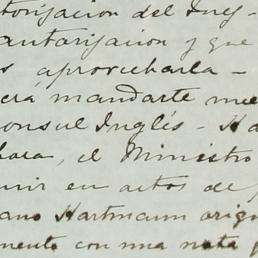 torizacion del Ing-
autorizacion y que
s aprovecharla -
erá mandarte
onsul Inglés -
el Ministro
rir en actos de
ano Hartmann orig
mento con una nota